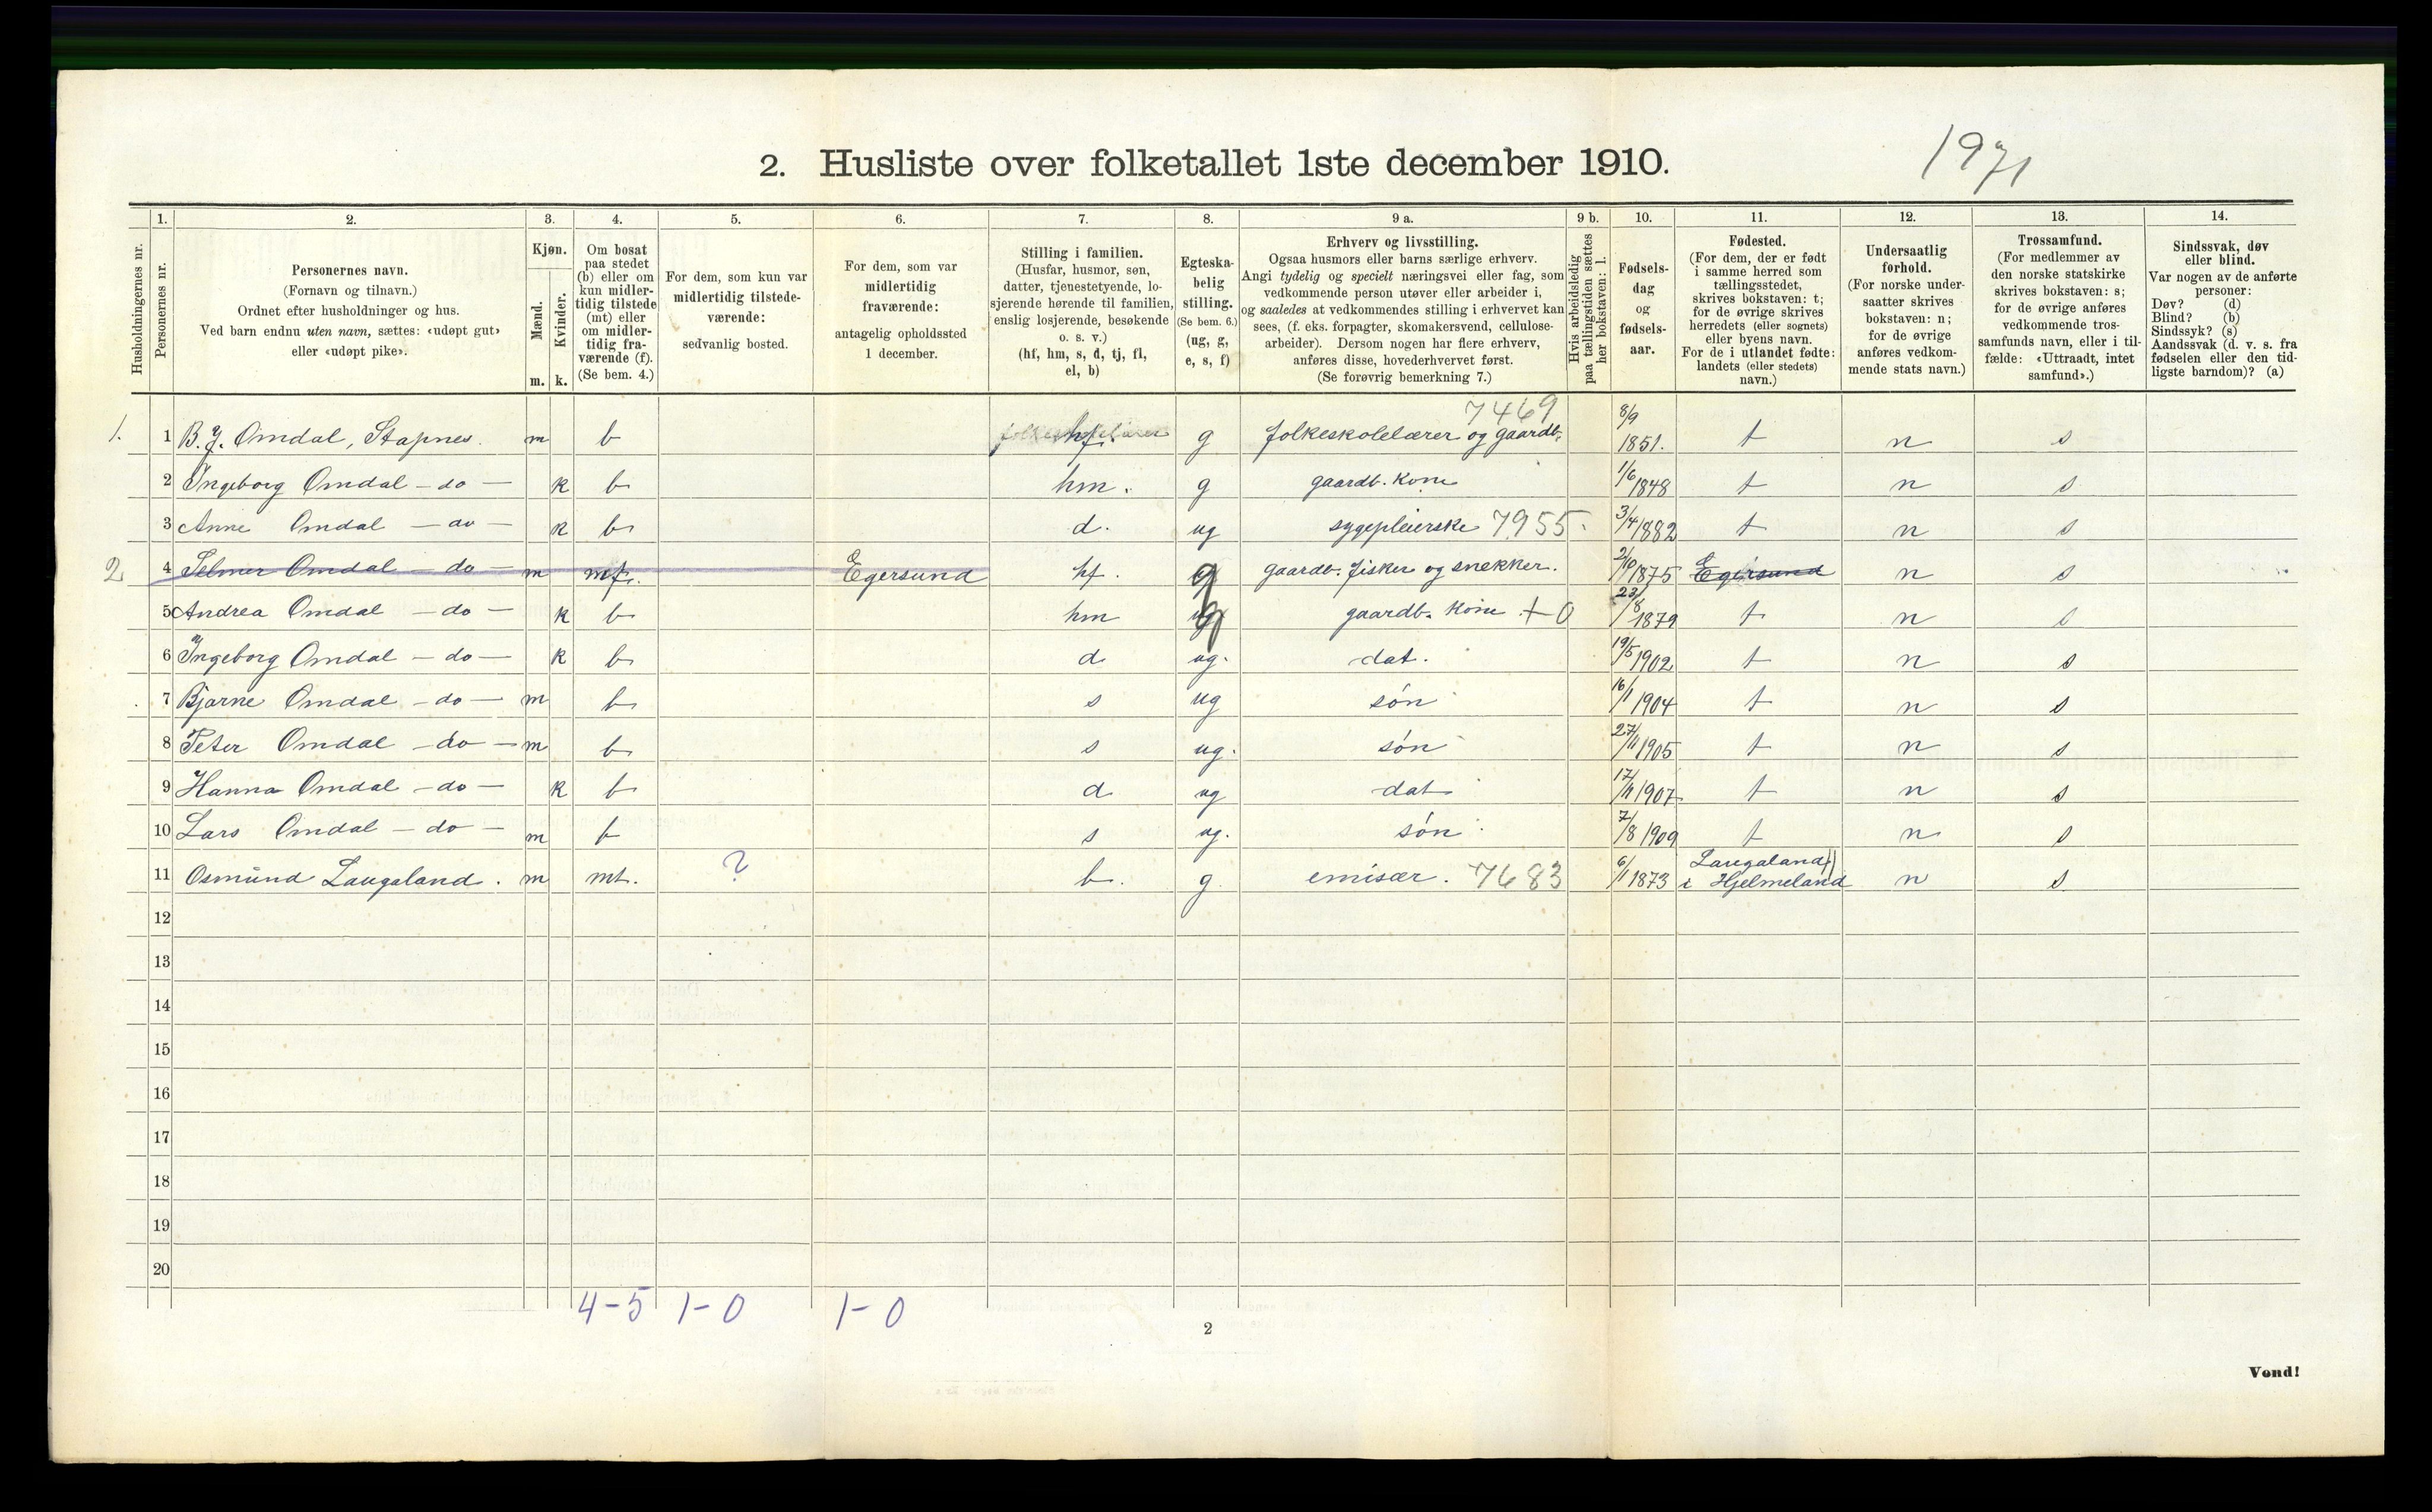 1971
2. Husliste over folketallet 1ste december 1910.
Husholdningernes nr.
1.
Personernes nr.
2.
Personernes navn.
(Fornavn og tilnavn.)
Ordnet efter husholdninger og hus.
Ved barn endnu uten navn, sættes: «udøpt gut»
eller «udøpt pike».
3.
Kjøn.
Mænd.
Kvinder.
m. k.
4.
Om bosat
paa stedet
(b) eller om
kun midler-
tidig tilstede
(mt) eller
om midler-
tidig fra-
værende (f).
(Se bem. 4.)
5.
For dem, som kun var
midlertidig tilstede-
værende:
sedvanlig bosted.
6.
For dem, som var
midlertidig
fraværende:
antagelig opholdssted
1 december.
7.
Stilling i familien.
(Husfar, husmor, søn,
datter, tjenestetyende, lo-
sjerende hørende til familien,
enslig losjerende, besøkende
o. s. v.)
(hf, hm, s, d, tj, fl,
el, b)
8.
Egteska-
belig
stilling.
(Se bem. 6.)
(ug, g,
e, s, f)
9 a.
Erhverv og livsstilling.
Ogsaa husmors eller barns særlige erhverv.
Angi tydelig og specielt næringsvei eller fag, som
vedkommende person utøver eller arbeider i,
og saaledes at vedkommendes stilling i erhvervet kan
sees, (f. eks. forpagter, skomakersvend, cellulose-
arbeider). Dersom nogen har flere erhverv,
anføres disse, hovederhvervet først.
(Se forøvrig bemerkning 7.)
9 b.
Hvis arbeidsledig
paa tællingstiden sættes
her bokstaven: l.
10.
Fødsels-
dag
og
fødsels-
aar.
11.
Fødested.
(For dem, der er født
i samme herred som
tællingsstedet,
skrives bokstaven: t;
for de øvrige skrives
herredets (eller sognets)
eller byens navn.
For de i utlandet fødte:
landets (eller stedets)
navn.)
12.
Undersaatlig
forhold.
(For norske under-
saatter skrives
bokstaven: n;
for de øvrige
anføres vedkom-
mende stats navn.)
13.
Trossamfund.
(For medlemmer av
den norske statskirke
skrives bokstaven: s;
for de øvrige anføres
vedkommende tros-
samfunds navn, eller i til-
fælde: «Uttraadt, intet
samfund».)
14.
Sindssvak, døv
eller blind.
Var nogen av de anførte
personer:
Døv? (d)
Blind? (b)
Sindssyk? (s)
Aandssvak (d. v. s. fra
fødselen eller den tid-
ligste barndom)? (a)
1. 1 B. J. Omdal, Stapnes. m b hf. g folkeskolelærer og gaardb. 7469 8/9 1851. t n s
2 Ingeborg Omdal - do - k b hm. g gaardb. kone 1/6 1848 t n s
3 Anne Omdal - do - k b d. ug sygepleierske 7955 3/4 1882 t n s
2 4 Selmer Omdal - do - m mf. Egersund hf. g gaardb. fisker og snekker. 2/10 1875 Egersund n s
5 Andrea Omdal - do - k b hm g gaardb. kone + 0 23/8 1879 t n s
6 Ingeborg Omdal - do - k b d ug. dat. 19/5 1902 t n s
7 Bjarne Omdal - do - m b s ug søn 16/1 1904 t n s
8 Peter Omdal - do - m b s ug. søn 27/11 1905 t n s
9 Hanna Omdal - do - k b d ug dat 17/11 1907 t n s
10 Lars Omdal - do - m b s ug. søn 7/8 1909 t n s
11 Osmund Laugaland. m mt. ? b. g emisær. 7683 6/11 1873 Laugaland i Hjelmeland n s
12
13
14
15
16
17
18
19
20
4-5 1-0 1-0
2
Vend!